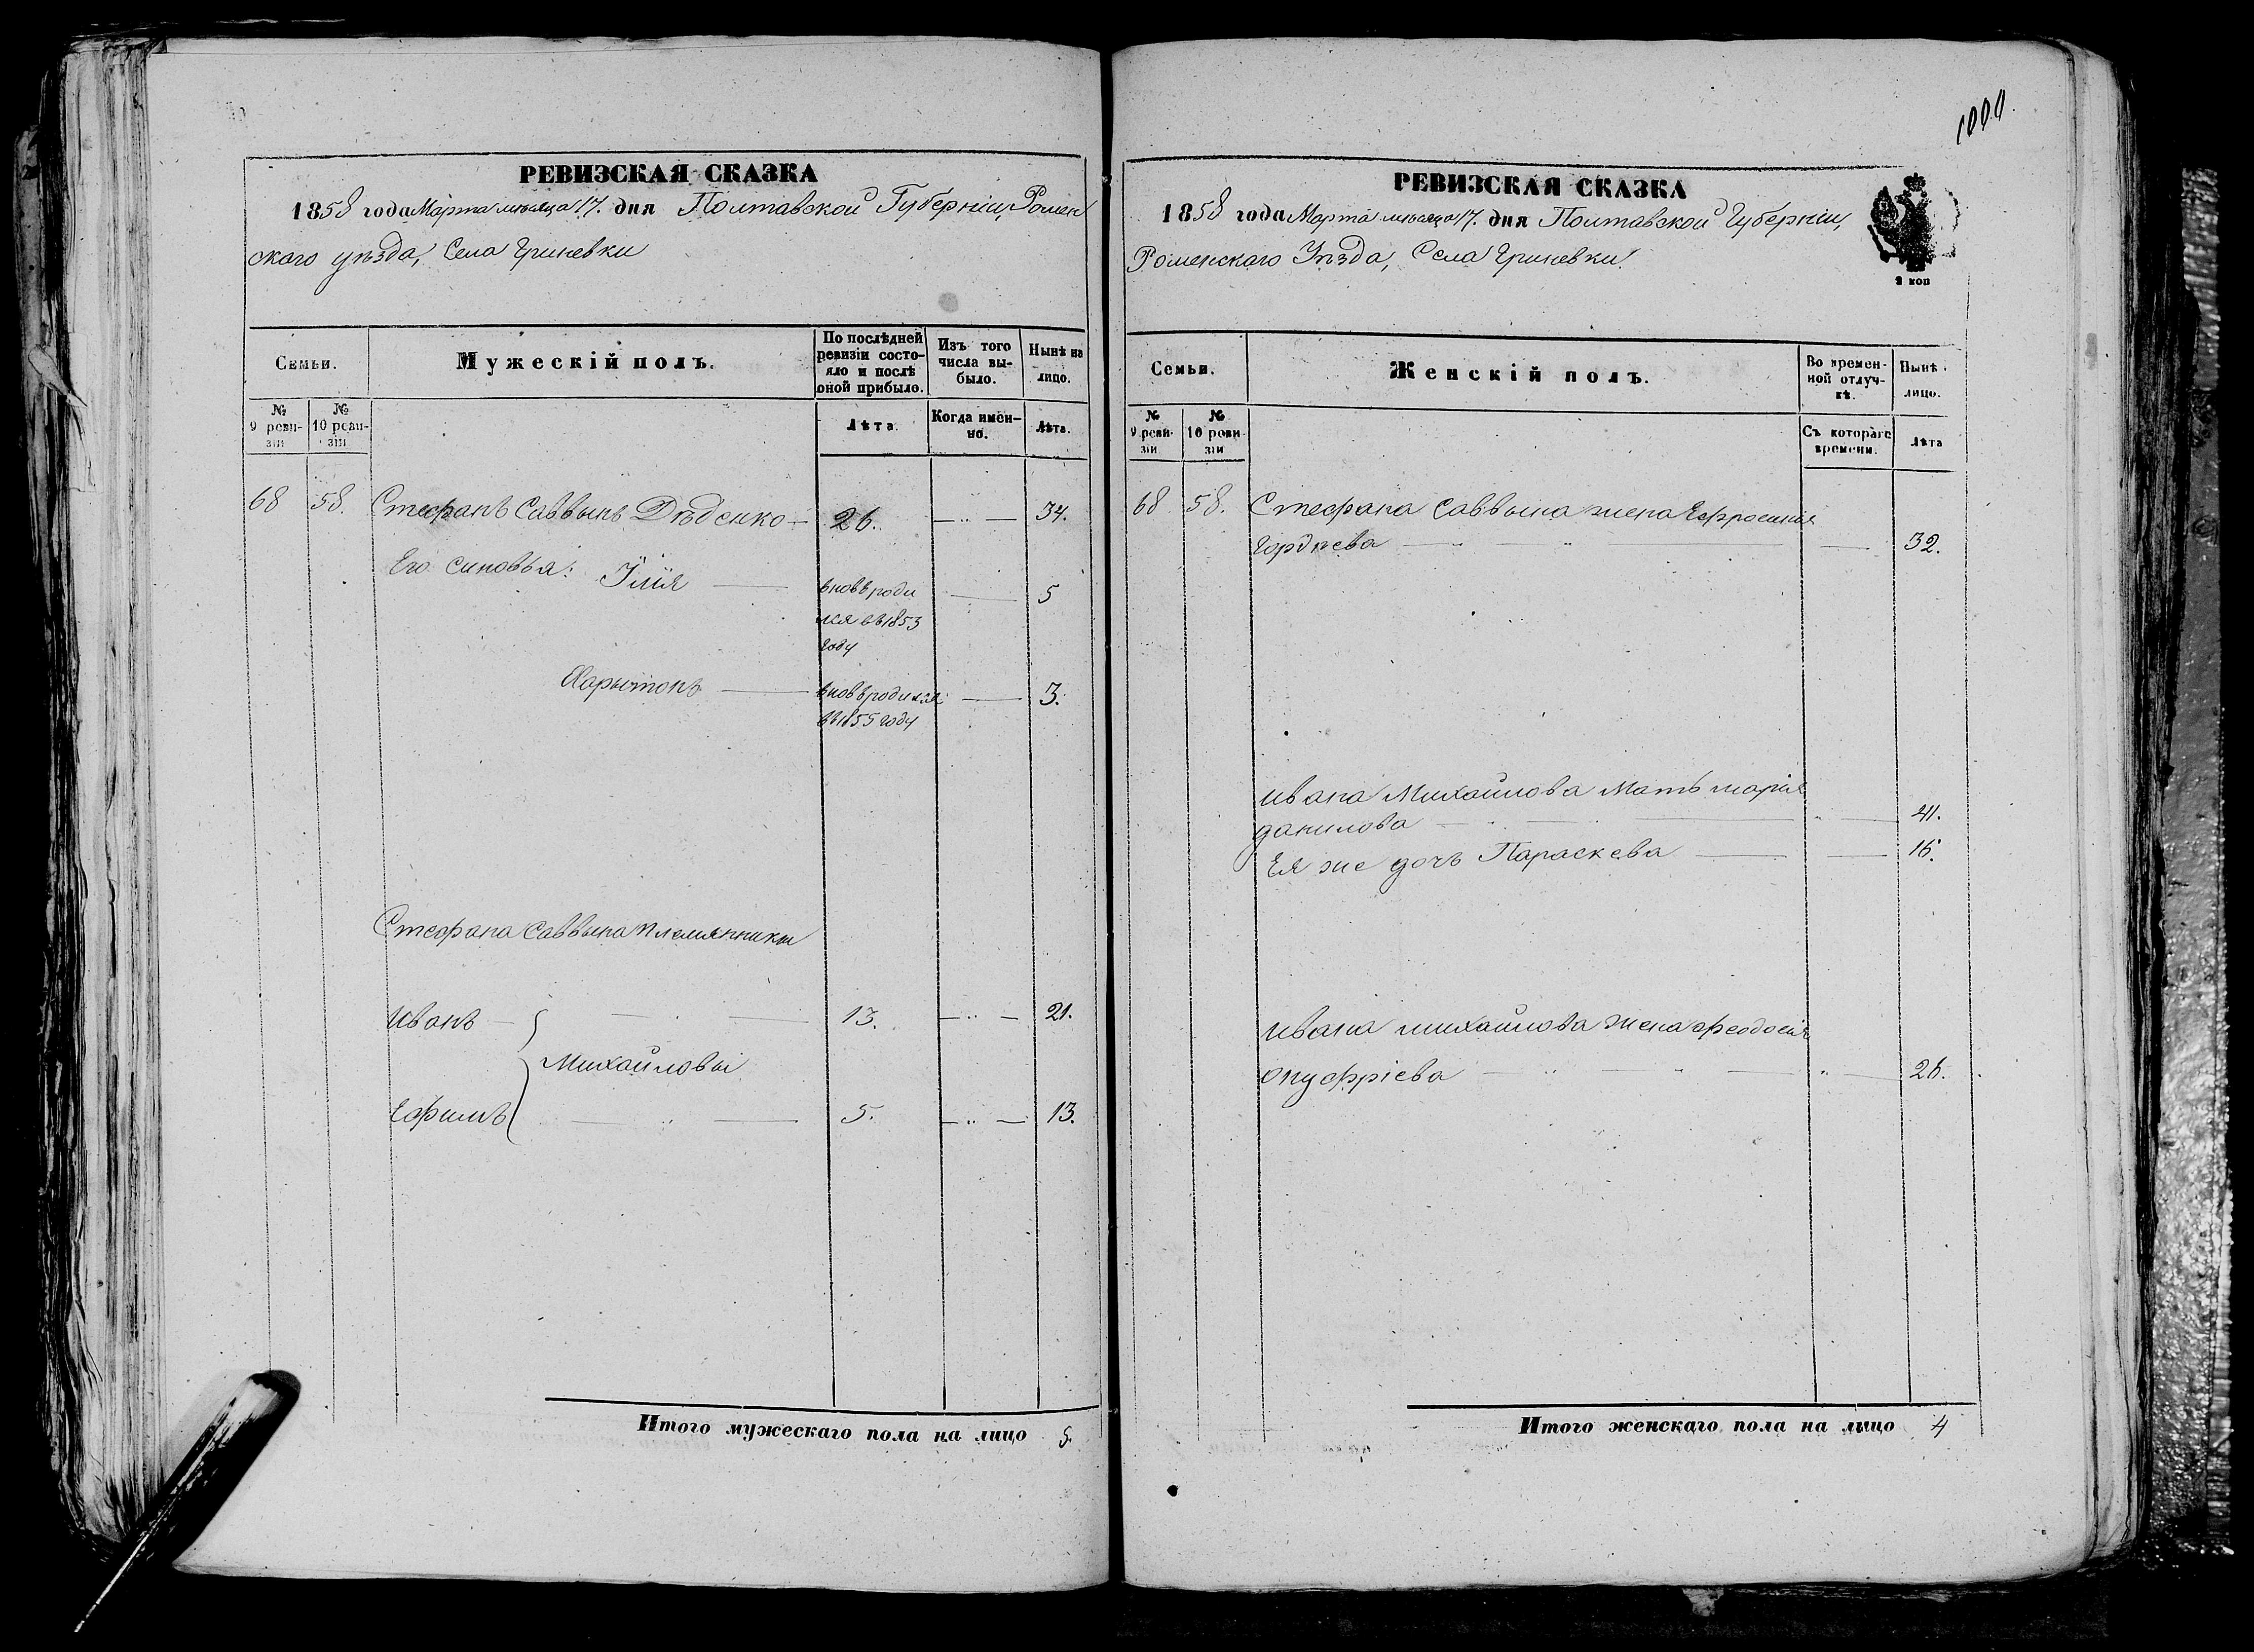 РЕВИЗСКАЯ СКАЗКА
1858 года Марта месяца 17. дня Полтавской Губерніи, Ромен
ского уѣзда, Села Гриневки
Семьи.
Мужескій полъ.
По послѣдней ревизіи состояло и послѣ оной прибыло.
Изъ того числа выбыло.
Нынѣ на лицо.
№ 9 ревизіи
№ 10 ревизіи
Лѣта.
Когда именно.
Лѣта.
68 58. Стефанъ Саввынъ Дѣденко 26. 34.
Его синовья: Їлія вновь роди 5
лся въ 1853
году
Харытонъ вновь родился 3.
въ 1855 году
Стефана Саввына племянникы
Иванъ 13. 21.
Михайловы
Ефимъ 5. 13.
Итого мужескаго пола на лицо 5
1000.
РЕВИЗСКАЯ СКАЗКА
1858 года Марта месяца 17. дня Полтавской Губерніи,
Роменскаго Уѣзда, Села Гриневки.
2 коп
Семьи.
Женскій полъ.
Во временной отлучкѣ.
Нынѣ лицо.
№ 9 ревизіи
№ 10 ревизіи
Съ котораго времени.
Лѣта
68 58. Стефана Саввына жена Ефросинія
Гордѣева 32.
Ивана Михайлова Мать марія
данилова 41.
Ея же дочь Параскева 16.
Ивана михайлова жена феодосія
Онуфріева 26.
Итого женскаго пола на лицо 4